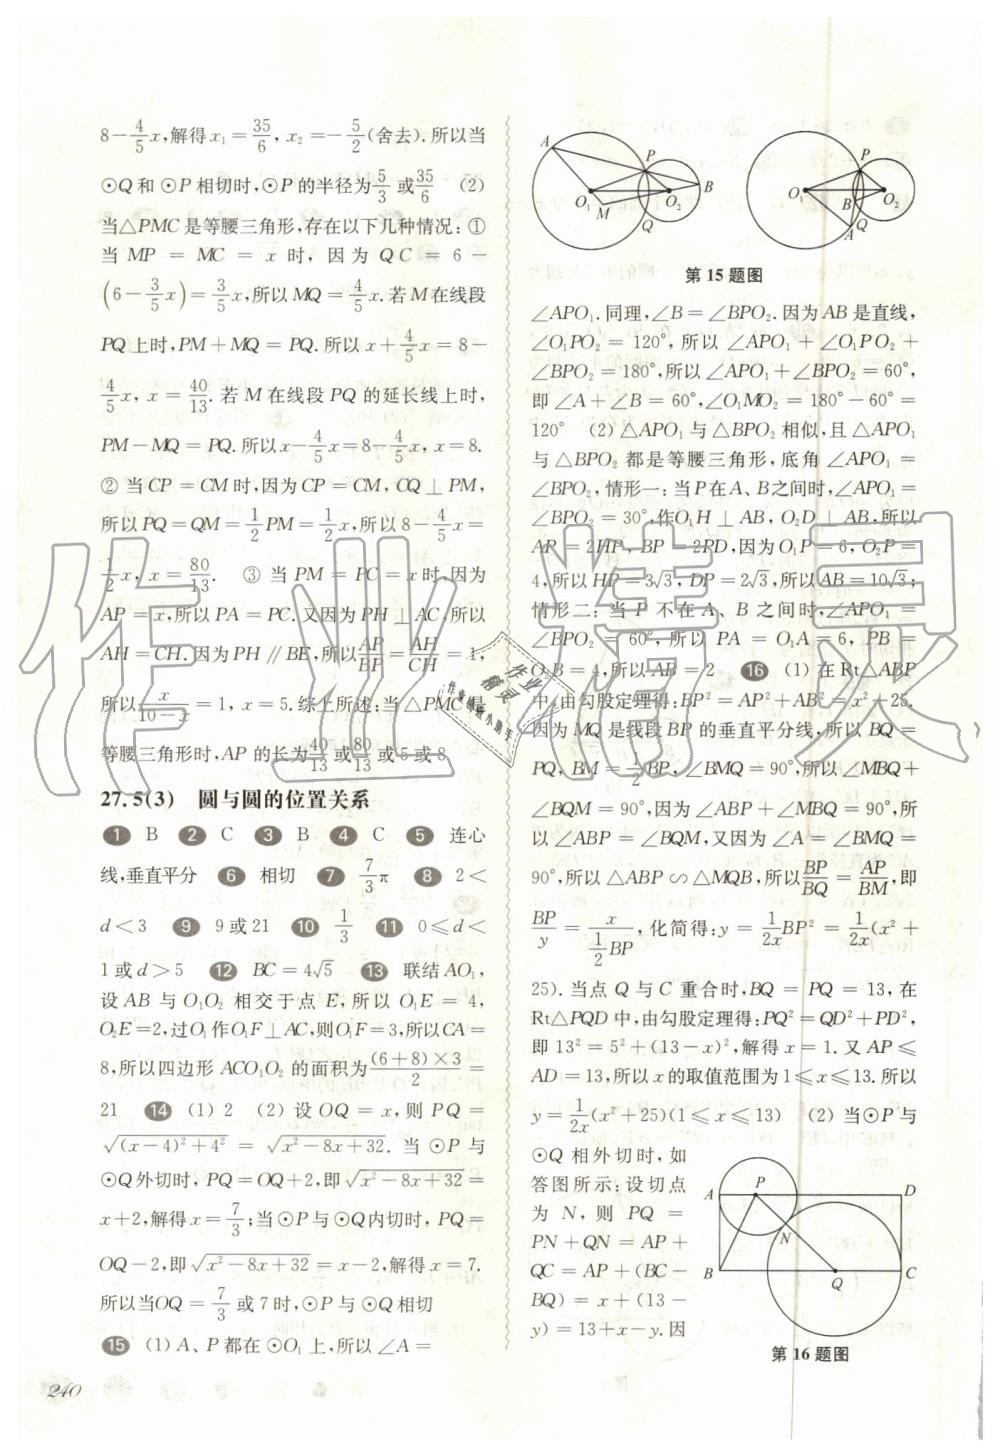 8－4/5x,解得x₁＝35/6，x₂＝－5/2(舍去).所以当
⊙Q和⊙P相切时,⊙P的半径为5/3或35/6 (2)
当△PMC是等腰三角形,存在以下几种情况:①
当MP＝MC＝x时，因为QC＝6－
(6－3/5x)＝3/5x,所以MQ＝4/5x.若M在线段
PQ上时,PM＋MQ＝PQ.所以x＋4/5x＝8－
4/5x，x＝40/13.若M在线段PQ的延长线上时,
PM－MQ＝PQ.所以x－4/5x＝8－4/5x，x＝8.
② 当CP＝CM时,因为CP＝CM,CQ⊥PM,
所以PQ＝QM＝1/2PM＝1/2x,所以8－4/5x＝
1/2x,x＝80/13. ③ 当PM＝PC＝x时,因为
AP＝x,所以PA＝PC.又因为PH⊥AC,所以
AH＝CH.因为PH∥BE,所以AP/BP＝AH/CH＝1,
所以x/(10－x)＝1，x＝5.综上所述:当△PMC是
等腰三角形时,AP的长为40/13或80/13或5或8
27.5(3) 圆与圆的位置关系
1 B 2 C 3 B 4 C 5 连心
线,垂直平分 6 相切 7 7/3π 8 2＜
d＜3 9 9或21 10 1/3 11 0≤d＜
1或d＞5 12 BC＝4√5 13 联结AO₁,
设AB与O₁O₂相交于点E,所以O₁E＝4,
O₂E＝2,过O₁作O₁F⊥AC,则O₁F＝3,所以CA＝
8,所以四边形ACO₁O₂的面积为(6＋8)×3/2＝
21 14 (1) 2 (2) 设OQ＝x,则PQ＝
√((x－4)²＋4²)＝√(x²－8x＋32). 当⊙P与
⊙Q外切时,PQ＝OQ＋2,即√(x²－8x＋32)＝
x＋2,解得x＝7/3;当⊙P与⊙Q内切时,PQ＝
OQ－2,即√(x²－8x＋32)＝x－2,解得x＝7.
所以当OQ＝7/3或7时,⊙P与⊙Q相切
15 (1) A、P都在⊙O₁上,所以∠A＝
240
A P O₁ M O₂ B Q
O₁ P B O₂ A Q
第15题图
∠APO₁.同理,∠B＝∠BPO₂.因为AB是直线,
∠O₁PO₂＝120°,所以∠APO₁＋∠O₁PO₂＋
∠BPO₂＝180°,所以∠APO₁＋∠BPO₂＝60°,
即∠A＋∠B＝60°,∠O₁MO₂＝180°－60°＝
120° (2) △APO₁与△BPO₂相似,且△APO₁
与△BPO₂都是等腰三角形,底角∠APO₁＝
∠BPO₂,情形一:当P在A、B之间时,∠APO₁＝
∠BPO₂＝30°,作O₁H⊥AB，O₂D⊥AB,所以
AP＝2HP，BP＝2PD,因为O₁P＝6，O₂P＝
4,所以HP＝3√3,DP＝2√3,所以AB＝10√3;
情形二:当P不在A、B之间时,∠APO₁＝
∠BPO₂＝60°,所以PA＝O₁A＝6，PB＝
O₂B＝4,所以AB＝2 16 (1) 在Rt△ABP
中,由勾股定理得:BP²＝AP²＋AB²＝x²＋25.
因为MQ是线段BP的垂直平分线,所以BQ＝
PQ，BM＝1/2BP,∠BMQ＝90°,所以∠MBQ＋
∠BQM＝90°,因为∠ABP＋∠MBQ＝90°,所
以∠ABP＝∠BQM,又因为∠A＝∠BMQ＝
90°,所以△ABP∽△MQB,所以BP/BQ＝AP/BM,即
BP/y＝x/(1/2BP),化简得:y＝1/2x BP²＝1/2x(x²＋
25).当点Q与C重合时,BQ＝PQ＝13,在
Rt△PQD中,由勾股定理得:PQ²＝QD²＋PD²,
即13²＝5²＋(13－x)²,解得x＝1.又AP≤
AD＝13,所以x的取值范围为1≤x≤13.所以
y＝1/2x(x²＋25)(1≤x≤13) (2) 当⊙P与
⊙Q相外切时,如
答图所示:设切点
为N,则PQ＝
PN＋QN＝AP＋
QC＝AP＋(BC－
BQ)＝x＋(13－
y)＝13＋x－y.因
A P D N B Q C
第16题图
作业精灵
作业精灵